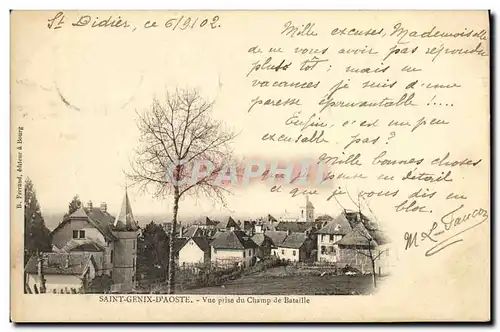 St Didier, ce 6/9/02.
Mille excuses, Mademoiselle
de ne vous avoir pas répondre
plus tôt ; mais en
vacances je suis d'une
paresse épouvantable !....
Enfin, c'est un peu
excusable, pas ?
Mille bonnes choses
en détail
que je vous dis en
bloc.
M L. Dancoz
CARTE-PHARAPH
B. Ferrand, éditeur à Bourg
SAINT-GENIX-D'AOSTE. - Vue prise du Champ de Bataille